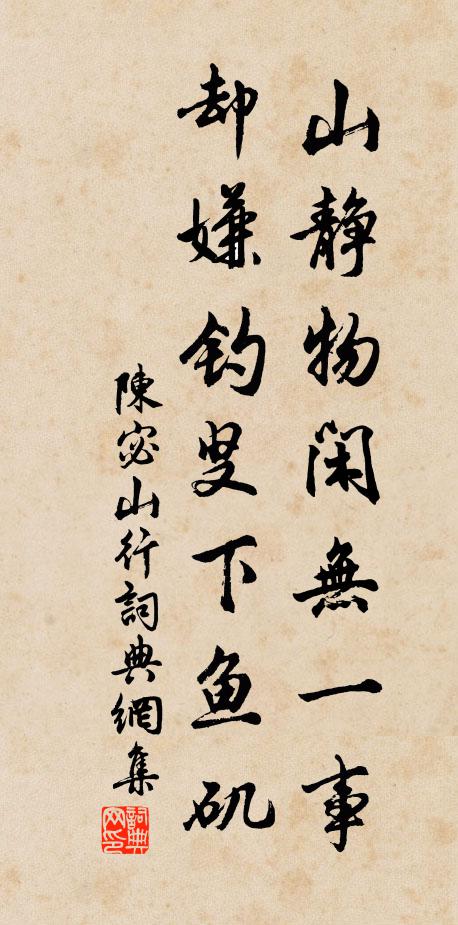 山静物闲無一事
却嫌钓叟下鱼矶
陳宓山行詞典網集
詞典网印